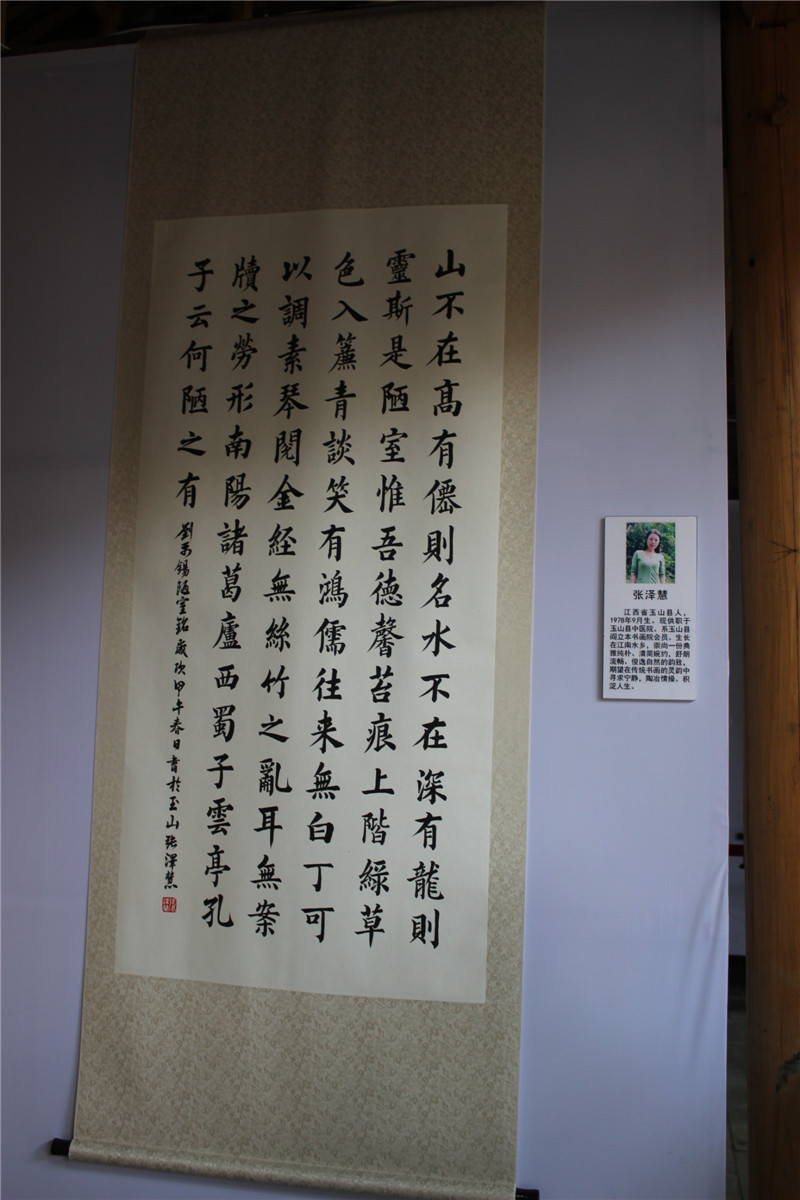 山不在高有僊則名水不在深有龍則
靈斯是陋室惟吾徳馨苔痕上階緑草
色入簾青談笑有鴻儒往来無白丁可
以調素琴閲金経無絲竹之亂耳無案
牘之勞形南陽諸葛廬西蜀子雲亭孔
子云何陋之有
劉禹錫陋室銘歲次甲午春日書於玉山張澤慧
张泽慧
江西省玉山县人，
1978年9月生。现供职于
玉山县中医院。系玉山县
阎立本书画院会员。生长
在江南水乡，崇尚一份典
雅纯朴、清简婉约，舒朗
流畅，俊逸自然的韵致，
期望在传统书画的灵韵中
寻求宁静，陶冶情操、积
淀人生。